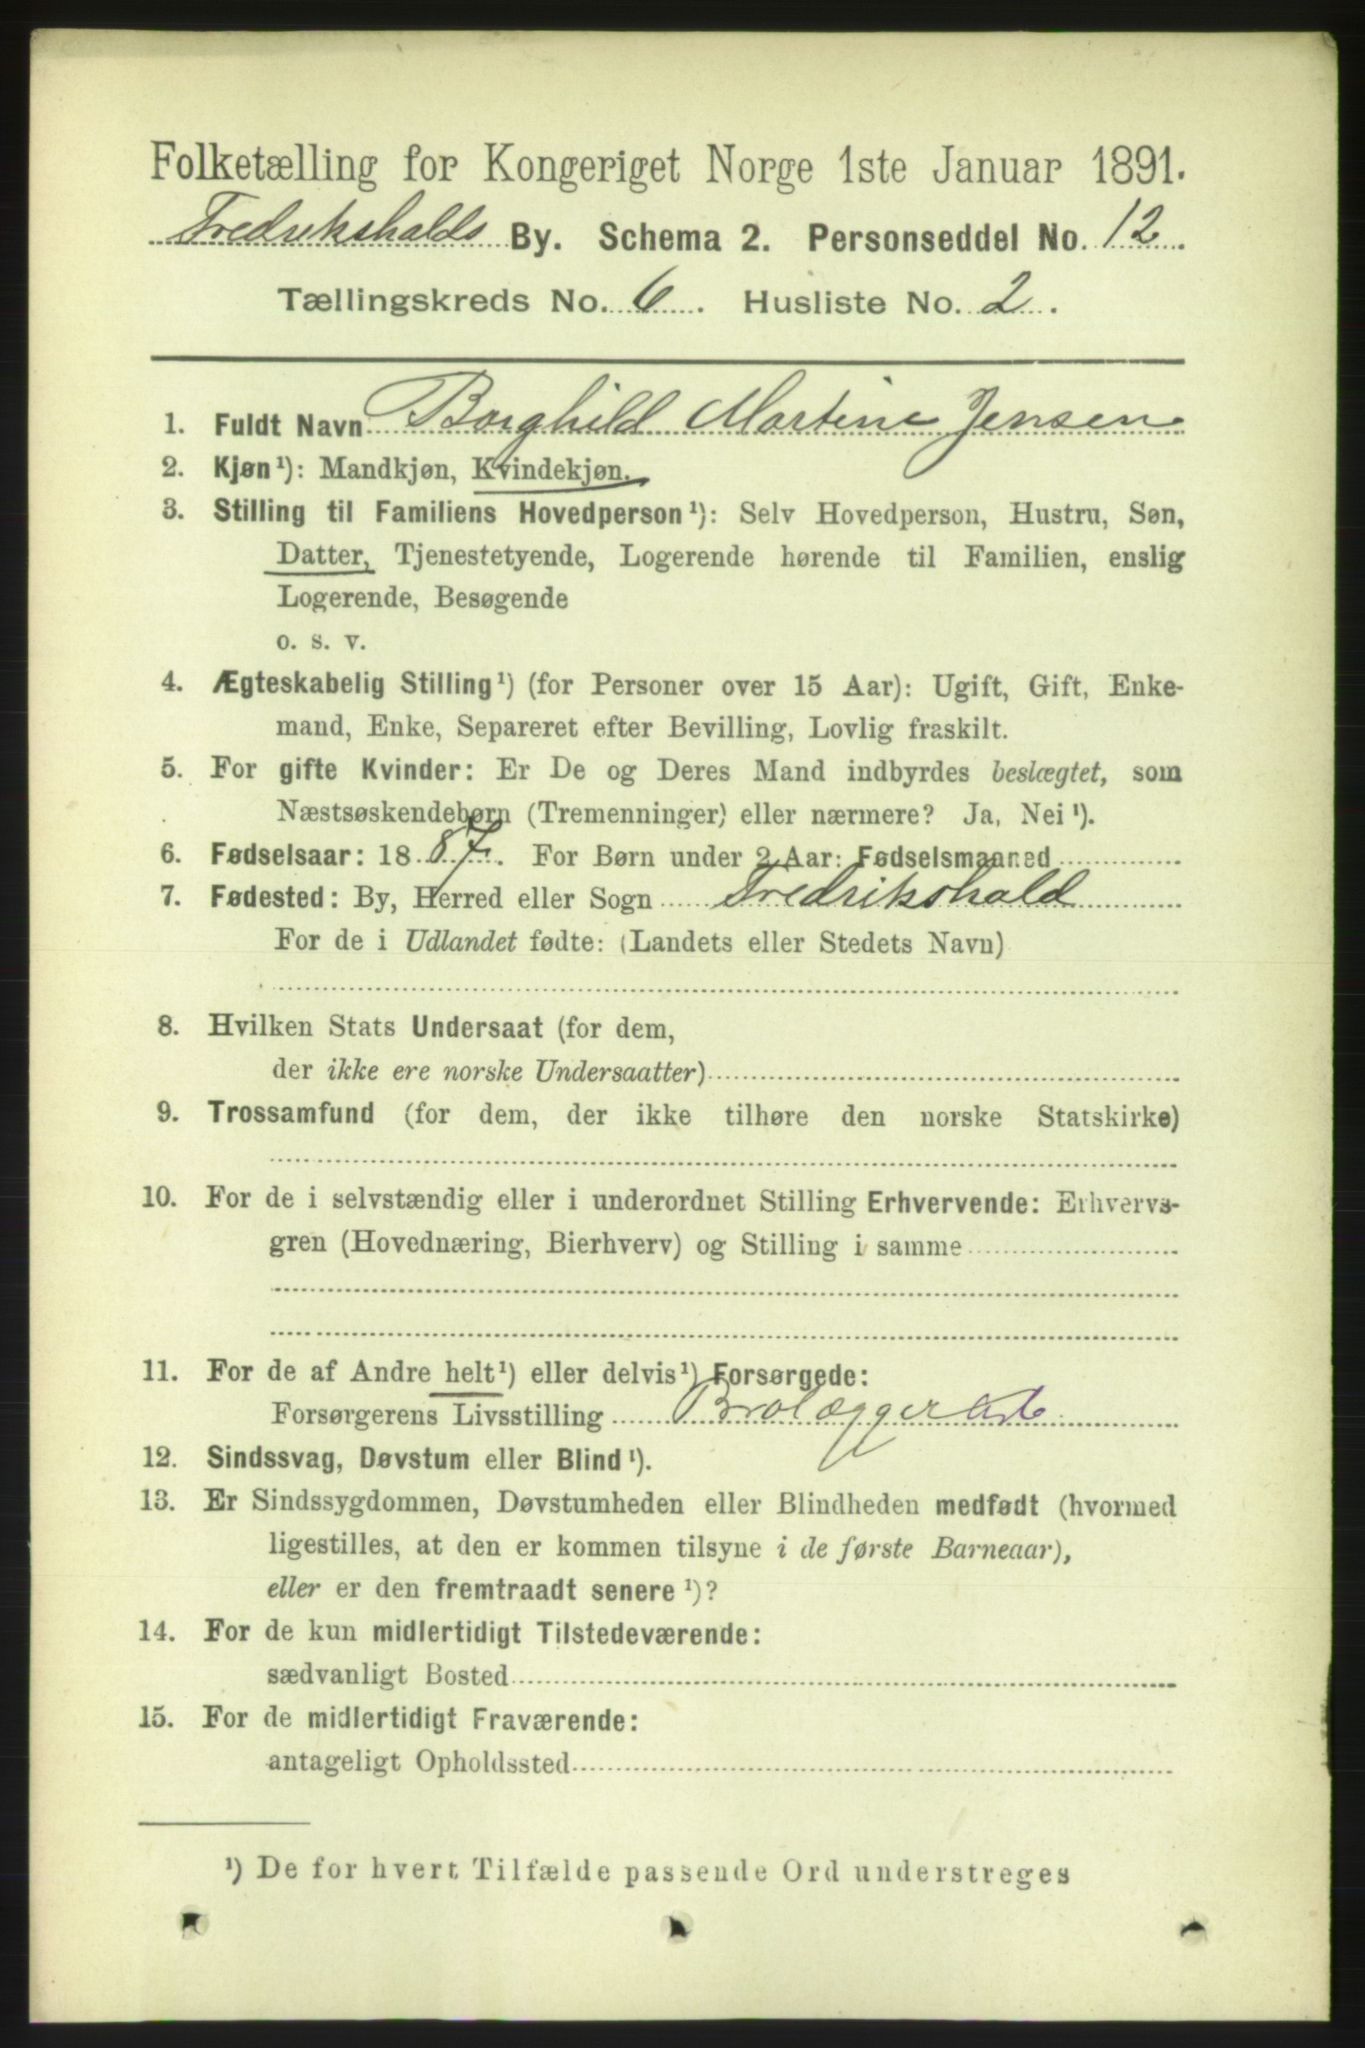 Folketælling for Kongeriget Norge 1ste Januar 1891.
Fredrikshalds By. Schema 2. Personseddel No. 12.
Tællingskreds No. 6. Husliste No. 2.
1. Fuldt Navn Borghild Martine Jensen
2. Kjøn¹): Mandkjøn, Kvindekjøn.
3. Stilling til Familiens Hovedperson¹): Selv Hovedperson, Hustru, Søn,
Datter, Tjenestetyende, Logerende hørende til Familien, enslig
Logerende, Besøgende
o. s. v.
4. Ægteskabelig Stilling¹) (for Personer over 15 Aar): Ugift, Gift, Enke-
mand, Enke, Separeret efter Bevilling, Lovlig fraskilt.
5. For gifte Kvinder: Er De og Deres Mand indbyrdes beslægtet, som
Næstsøskendebørn (Tremenninger) eller nærmere? Ja, Nei¹).
6. Fødselsaar: 1887. For Børn under 2 Aar: Fødselsmaaned
7. Fødested: By, Herred eller Sogn Fredrikshald
For de i Udlandet fødte: (Landets eller Stedets Navn)
8. Hvilken Stats Undersaat (for dem,
der ikke ere norske Undersaatter)
9. Trossamfund (for dem, der ikke tilhøre den norske Statskirke)
10. For de i selvstændig eller i underordnet Stilling Erhvervende: Erhvervs-
gren (Hovednæring, Bierhverv) og Stilling i samme
11. For de af Andre helt¹) eller delvis¹) Forsørgede:
Forsørgerens Livsstilling Brolægger arb
12. Sindssvag, Døvstum eller Blind¹).
13. Er Sindssygdommen, Døvstumheden eller Blindheden medfødt (hvormed
ligestilles, at den er kommen tilsyne i de første Barneaar),
eller er den fremtraadt senere¹)?
14. For de kun midlertidigt Tilstedeværende:
sædvanligt Bosted
15. For de midlertidigt Fraværende:
antageligt Opholdssted
¹) De for hvert Tilfælde passende Ord understreges